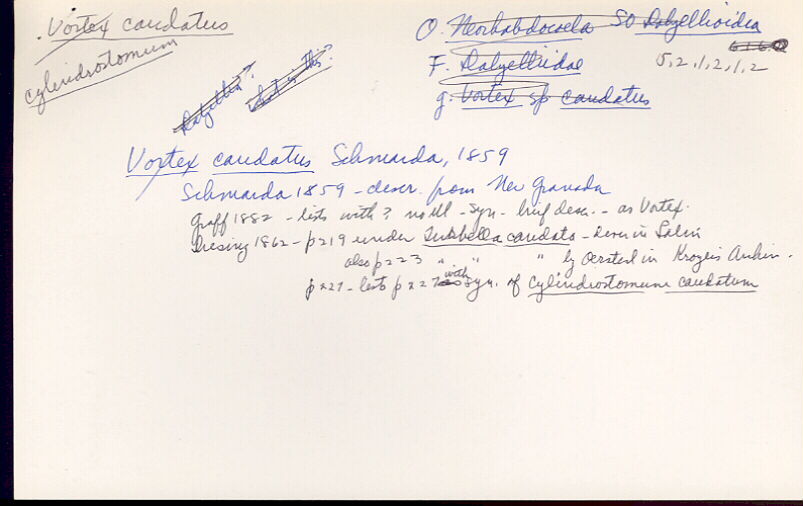 Vortex caudatus
cylindrostomum
O. Neorhabdocoela SO Dalyellioidea
6160
F. Dalyelliidae 5,2,1,2,1,2
g. Vortex sp caudatus
Dalyellia?
what is this?
Vortex caudatus Schmarda, 1859
Schmarda 1859 - descr. from New Granada
Graff 1882 - lists with ? no ill - syn - brief descr. - as Vortex.
Diesing 1862 - p219 under Turbella caudata - descr in Latin
also p223 " " " by Oersted in Krøyers
p 227 - lists p 227 with syn. of Cylindrostomum caudatum